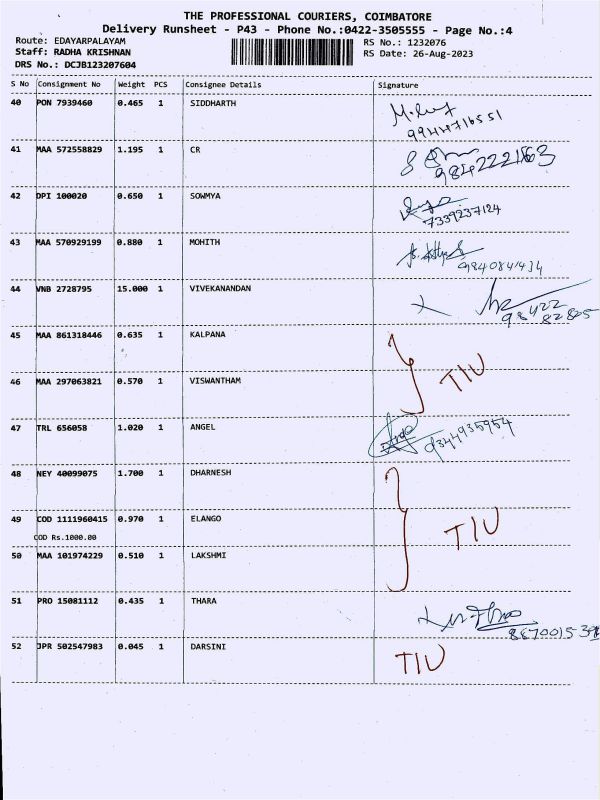 THE PROFESSIONAL COURIERS, COIMBATORE
Delivery Runsheet - P43 - Phone No.:0422-3505555 - Page No.:4
Route: EDAYARPALAYAM RS No.: 1232076
Staff: RADHA KRISHNAN RS Date: 26-Aug-2023
DRS No.: DCJB123207604
S No Consignment No Weight PCS Consignee Details Signature
40 PON 7939460 0.465 1 SIDDHARTH
9944716551
41 MAA 572558829 1.195 1 CR
42 DPI 100020 0.650 1 SOWMYA
7339237124
43 MAA 570929199 0.880 1 MOHITH
9840841434
44 VNB 2728795 15.000 1 VIVEKANANDAN
98422
82825
45 MAA 861318446 0.635 1 KALPANA
TIU
46 MAA 297063821 0.570 1 VISWANTHAM
47 TRL 656058 1.020 1 ANGEL
9344935954
48 NEY 40099075 1.700 1 DHARNESH
49 COD 1111960415 0.970 1 ELANGO
TIU
COD Rs.1000.00
50 MAA 101974229 0.510 1 LAKSHMI
51 PRO 15081112 0.435 1 THARA
52 JPR 502547983 0.045 1 DARSINI
TIU